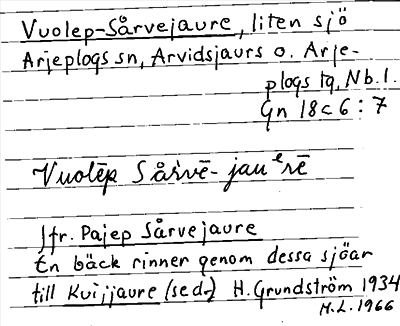 Vuolep-Sårvejaure, liten sjö
Arjeplogs sn, Arvidsjaurs o. Arje-
plogs tg, Nb. l.
Gn 18c 6 : 7
Vuolēp Sårvē-jauᵉrē
Jfr. Pajep Sårvejaure
En bäck rinner genom dessa sjöar
till Kuijjaure (se d.) H. Grundström 1934
M.L. 1966